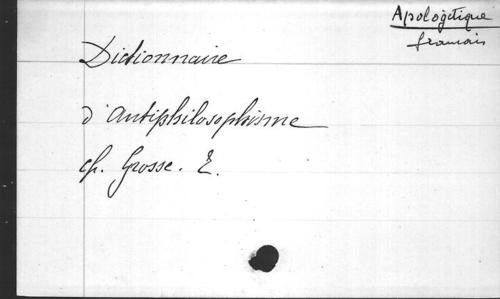 Apologétique
francais
Dictionnaire
d'Antiphilosophisme
cf. Grosse. E.